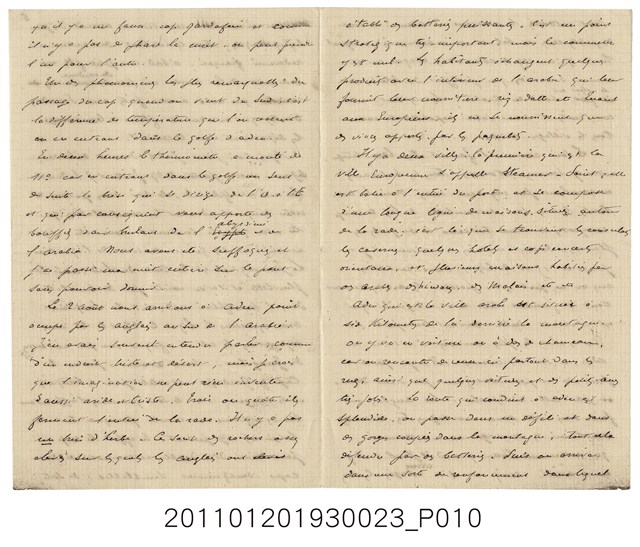 qu'il y a un faux cap Gardafui et comme
il n'y a pas de phare la nuit on peut prendre
l'un pour l'autre.
Un des phénomènes les plus remarquables du
passage du cap quand on vient du Sud, c'est
la différence de température que l'on ressent
en entrant dans le golfe d'aden.
En deux heures le thermomètre a monté de
11° car en entrant dans le golfe on sent
de suite la brise qui se dirige de l'O à l'E
et qui par conséquent vous apporte des
bouffées d'air brulant de l'abyssinie et de
l'arabie. Nous avons été suffoqués et
j'ai passé une nuit entière sur le pont
sans pouvoir dormir.
Le 2 août nous arrivons à aden point
occupé par les anglais au sud de l'arabie.
J'en avais souvent entendu parler, comme
d'un endroit triste et désert, mais je crois
que l'imagination ne peut rien inventer
d'aussi aride et triste. Trois ou quatre îles
ferment l'entrée de la rade. Il n'y a pas
un brin d'herbe. Ce sont des rochers assez
élevés sur lesquels les anglais ont
établi des batteries puissantes. C'est un point
stratégique très important, mais le commerce
y est nul. Les habitants échangent quelques
produits avec l'intérieur de l'arabie qui leur
fournit leur nourriture, riz, datte et
aux Européens, ils ne se nourrissent que
des vivres apportés par les paquebots.
Il y a deux villes : la première qui est la
ville Européenne s'appelle Steamer-Point, elle
est batie à l'entrée du port et se compose
d'une longue ligne de maisons situées autour
de la rade, c'est là que se trouvent les consulats
les casernes quelques hotels et cafés concerts
orientaux et plusieurs maisons habitées par
des arabes, des hindous, des Malais, etc etc
Aden qui est la ville arabe est située à
six kilomètres de là derrière la montagne
on y va en voiture ou à dos de chameau,
car on rencontre de ceux-ci partout dans les
rues, ainsi que quelques voitures et des petits ânes
très jolis. La route qui conduit à aden est
splendide, on passe dans un défilé et dans
des gorges coupées dans la montagne, tout cela
défendu par des batteries. Puis on arrive
dans une sorte de renfoncement dans lequel
201101201930023_P010